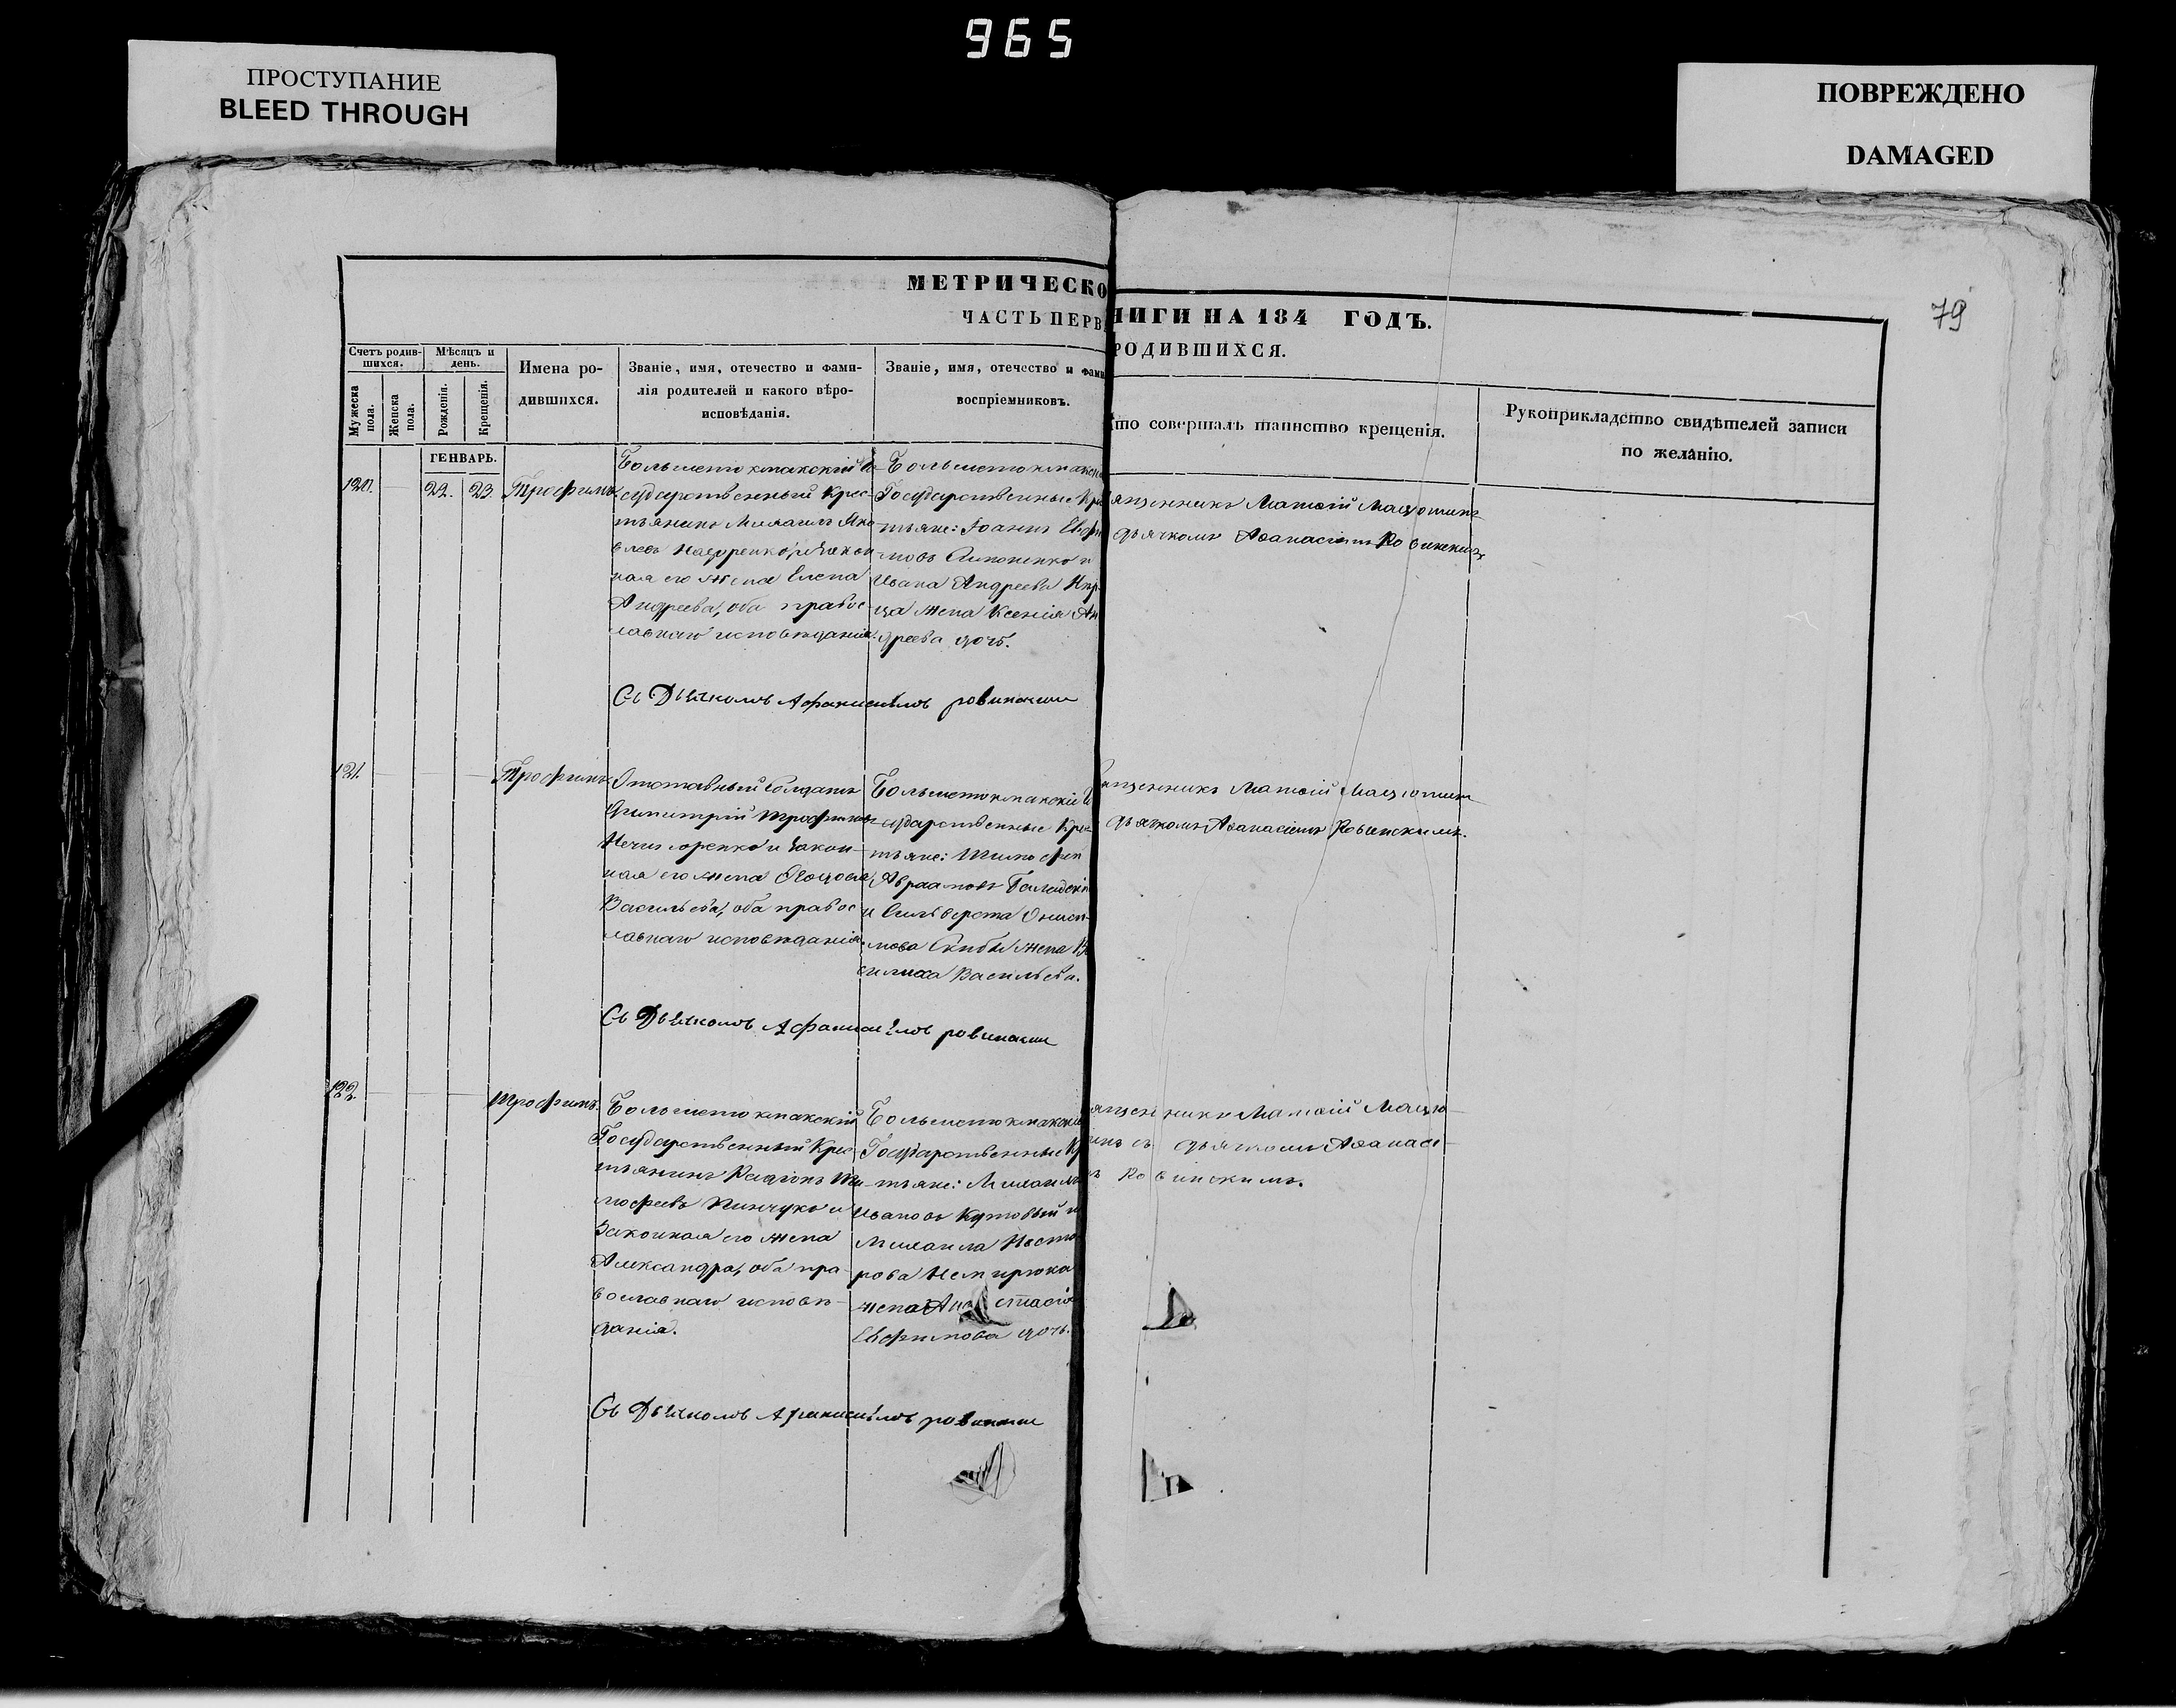 965
ПРОСТУПАНИЕ
BLEED THROUGH
ПОВРЕЖДЕНО
DAMAGED
79
МЕТРИЧЕСКО НИГИ НА 184 ГОДЪ.
ЧАСТЬ ПЕРВ РОДИВШИХСЯ.
Счетъ родившихся.
Мужеска пола.
Женска пола.
Мѣсяцъ и день.
Рожденія.
Крещенія.
Имена родившихся.
Званіе, имя, отечество и фами-
лія родителей и какого вѣро-
исповѣданія.
Званіе, имя, отечество и фами
воспріемниковъ.
Кто совершалъ таинство крещенія.
Рукоприкладство свидѣтелей записи
по желанію.
ГЕНВАРЬ.
120. 22. 23. Трофимъ
Большетокмакскій Го-
сударственный Крес-
тьянинъ Михаилъ Яко-
влевъ и закон-
ная его жена Елена
Андреева, оба правос-
лавнаго исповѣданія.
Большетокмакскі
Государственные Кре
тьяне: Іоаннъ Евфи
мовъ и
Ивана Андреева
жена Ксенія Ан
дреева дочь.
ященникъ Матѳій
дьячкомъ Аѳанасіемъ Ровинскимъ
Съ Дьячкомъ Афанасіемъ ровинским
121. Трофимъ
Отставный Солдатъ
Димитрій Трофимовъ
и закон-
ная его жена Ѳеодосія
Васильева, оба правос-
лавнаго исповѣданія.
Большетокмакскіе Го
сударственные Крес
тьяне: Тимофей
Авраамовъ
и Сильверста Ониси-
мова Скибы жена Ва
силиса Васильева.
ященникъ Матѳій
дьячкомъ Аѳанасіемъ Ровинскимъ.
Съ Дьячкомъ Афанасіемъ ровинским
122. Трофимъ.
Большетокмакскій
Государственный Крес-
тьянинъ Родіонъ Ти-
мофеевъ Пинчукъ и
Законная его жена
Александра, оба пра-
вославнаго исповѣ-
данія.
Большетокмакскі
Государственные Кр
тьяне: Михаилъ
Ивановъ Кутовый и
Михаила Несто
рова
жена Анастасія
Евфимова дочь.
ященникъ Матѳій
съ дьячкомъ Аѳанасі-
Ровинскимъ.
Съ Дьячкомъ Афанасіемъ ровинским